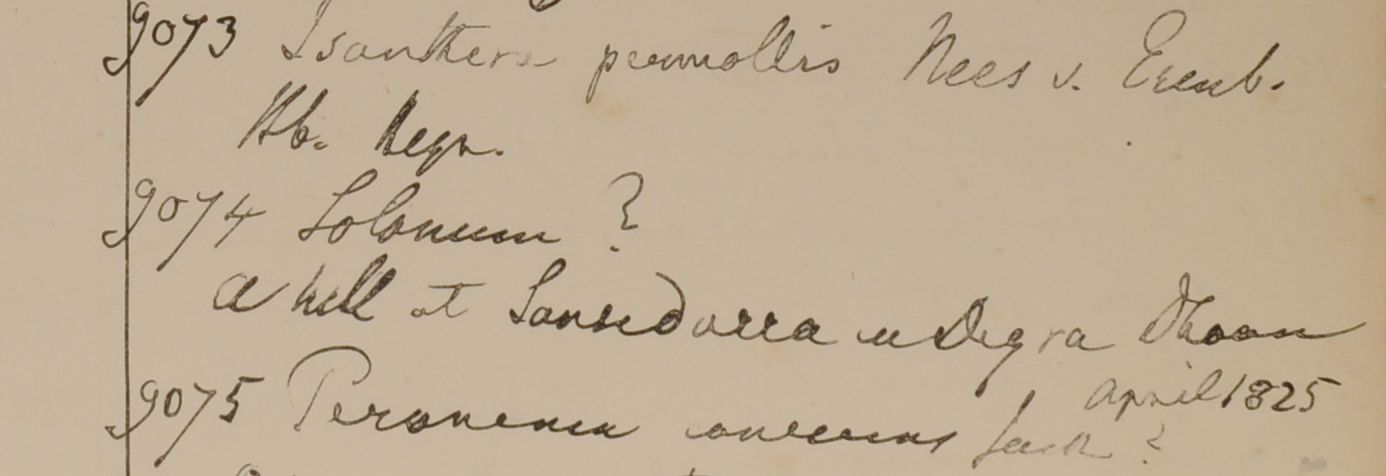 9073 Isanthera permollis Nees v. Esenb.
Hb. Heyn.
9074 Solanum ?
a hill at Sansedarra in Degra Dhoon
April 1825
9075 Peronema canescens Jack ?